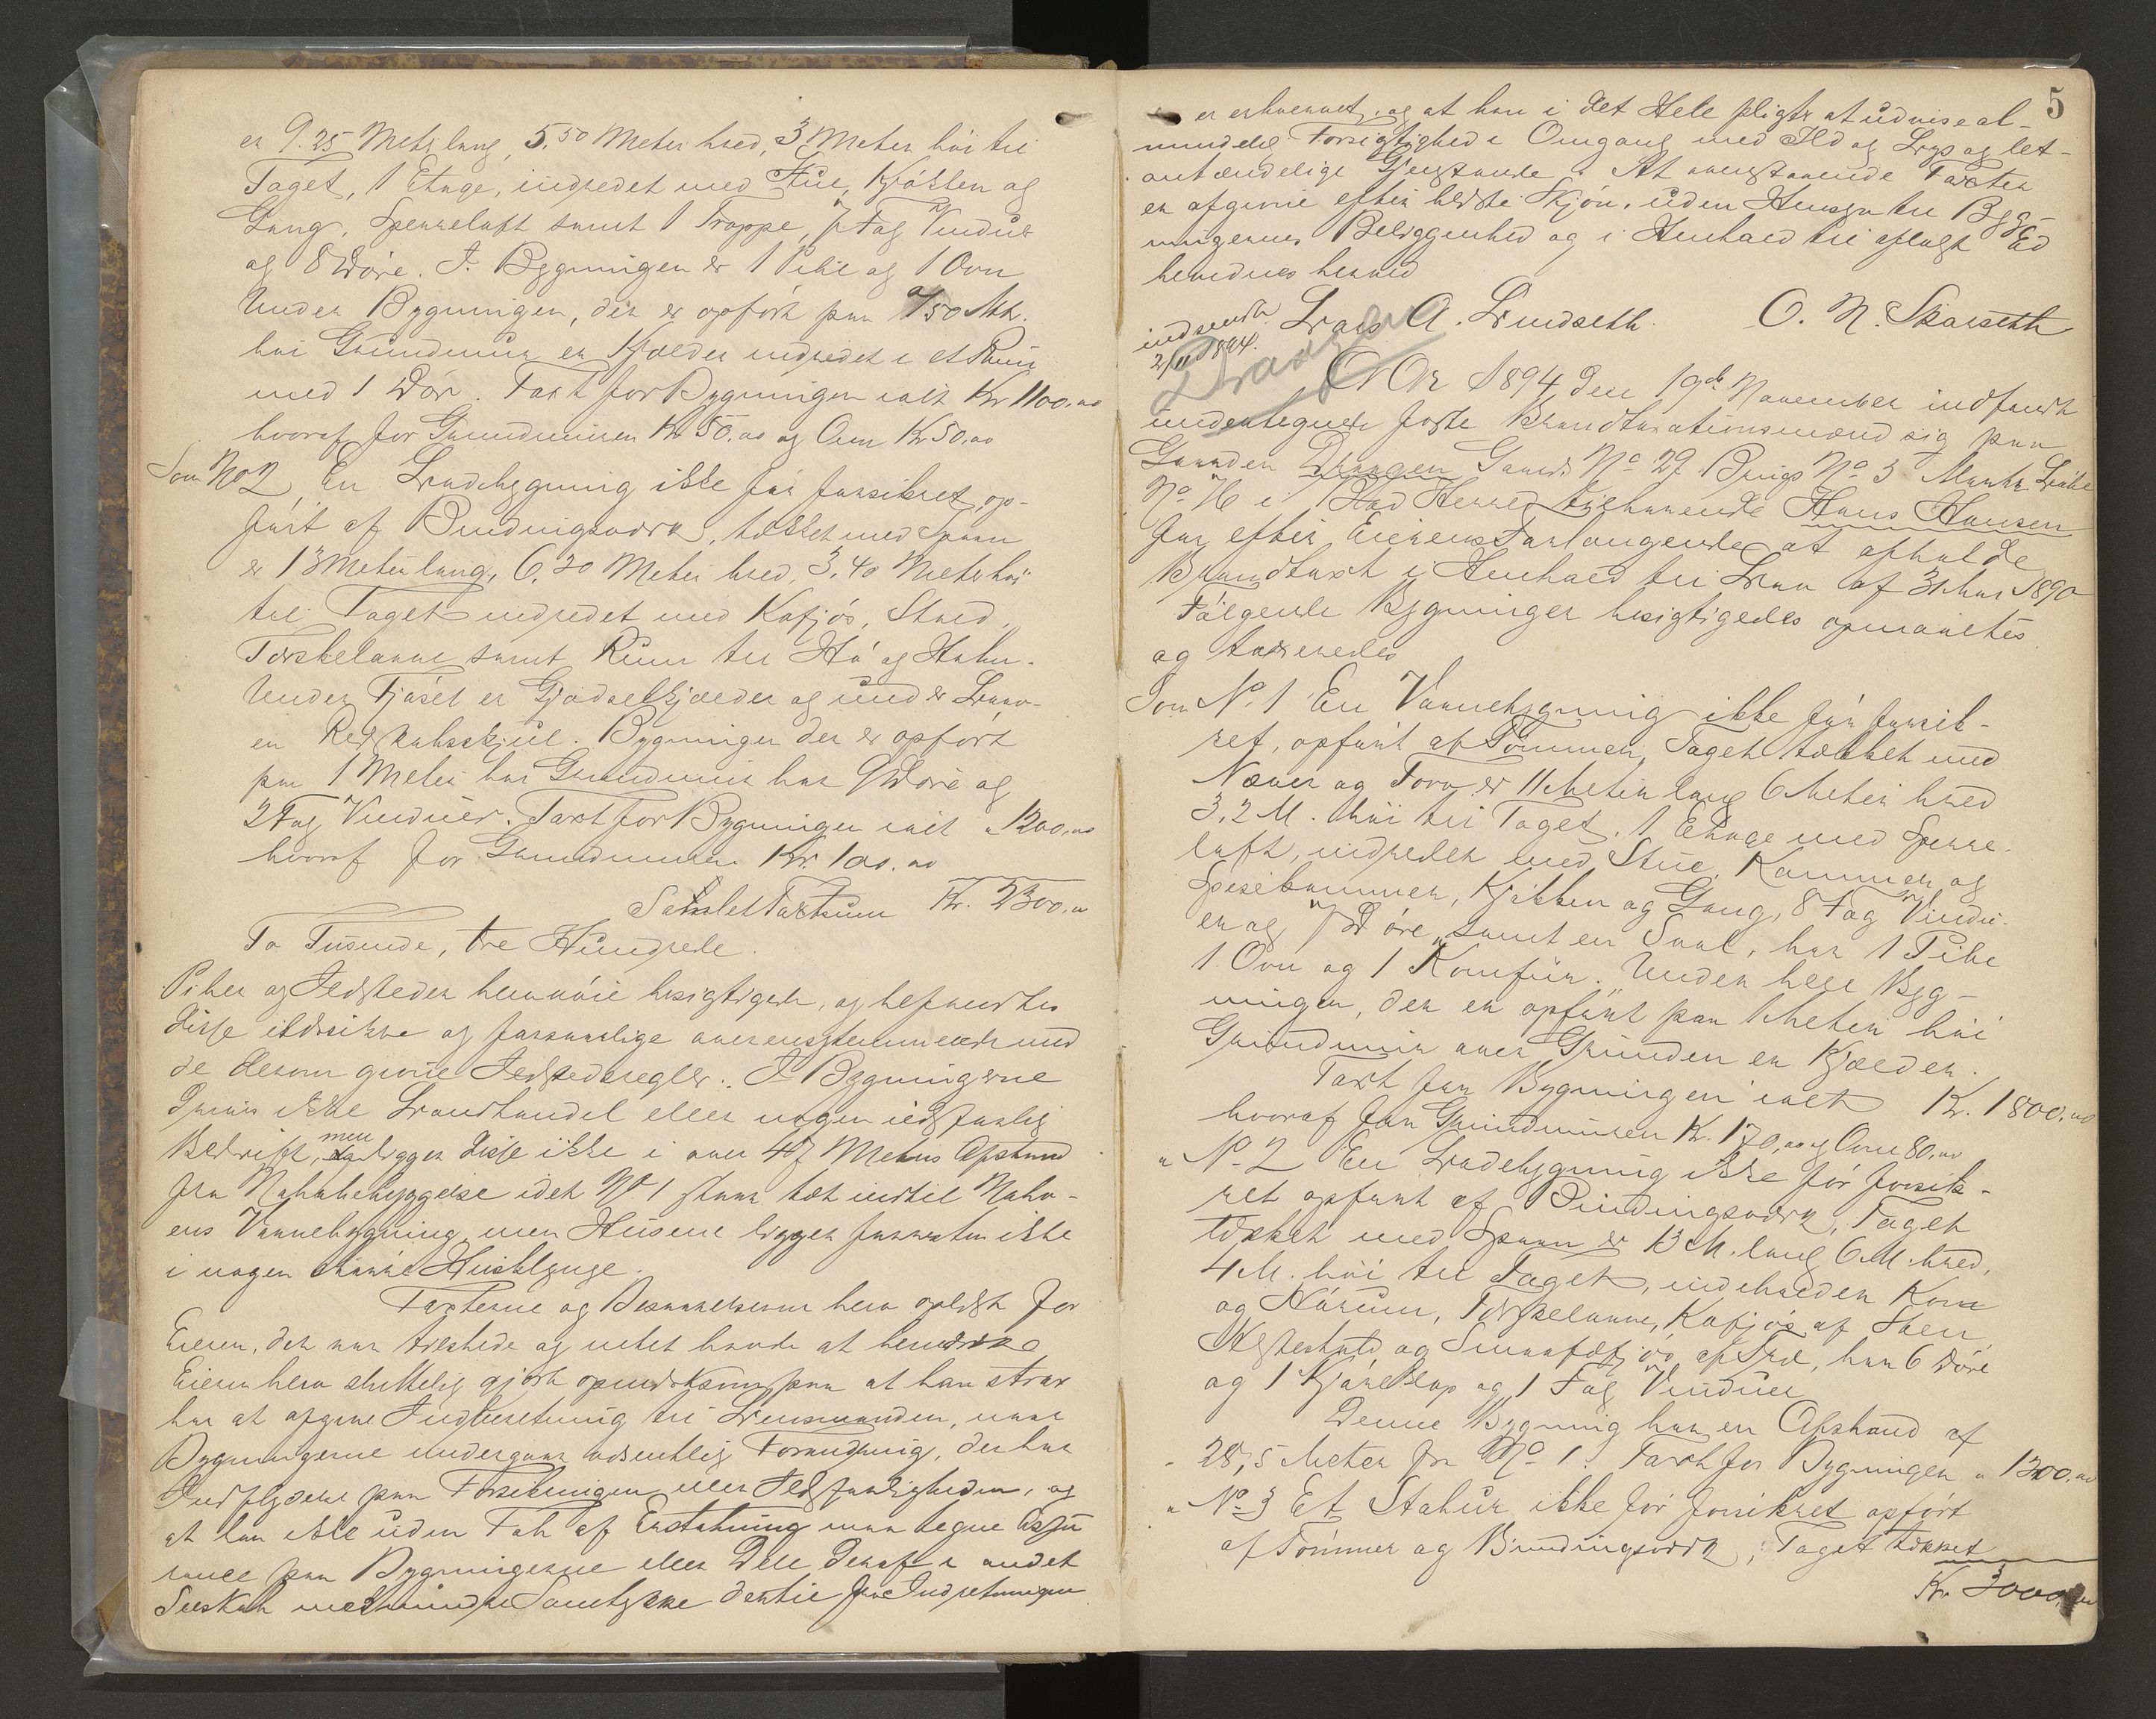 er 9.25 Meter lang, 5.50 Meter bred, 3 Meter høi til
Taget, 1 Etage, indredet med Stue, Kjøkken og
Gang, Sperreloft samt 1 Trappe, 7 Fag Vinduer
og 8 Døre. I Bygningen er 1 Pibe og 1 Ovn
Under Bygningen, der er opført paa 0/50 Mtr.
høi Grundmur er Kjælder indredet i et Rum
med 1 Dør. Taxt for Bygningen ialt Kr 1100.00
hvoraf for Grundmuren Kr 50.00 og Ovn Kr 50.00
Som No 2 En Ladebygning ikke før forsikret, op-
ført af Bindingsværk, tækket med Spaan
er 13 Meter lang, 6.20 Meter bred, 3.40 Meter høi
til Taget indredet med Kofjøs, Stald,
Tærskelaave samt Rum til Hø og Halm.
Under Fjøset er Gjødselkjælder og under Laave-
en Redskabsskjul. Bygningen der er opført
paa 1 Meter høi Grundmur har 9 Døre og
2 Fag Vinduer. Taxt for Bygningen ialt " 1200.00
hvoraf for Grundmuren Kr. 100.00
Samlet Taxtsum Kr. 2300.00
To Tusinde, tre Hundrede.
Piber og Ildsteder blev nøie besigtigede, og befandtes
disse ildsikre og forsvarlige overensstemmende med
de derom givne Ildstedsregler. I Bygningerne
drives ikke Landhandel eller nogen ildsfarlig
Bedrift, men ligger disse ikke i over Meters Afstand
fra Nabobebyggelse idet No 1 staar tæt indtil Nabo-
ens Vaanebygning, men Husene ligger forresten ikke
i nogen større Husklynge.
Taxterne og Beskrivelserne blev oplæst for
Eieren, der var tilstede og intet havde at bemærke
Eieren blev sluttelig gjort opmærksom paa at han strax
har at afgive Indberetning til Lensmanden, naar
Bygningerne undergaar væsentlig Forandring, der har
Indflydelse paa Forsikringen eller Ildsfarligheden, og
at han ikke uden Tab af Erstatning maa tegne Assu
rance paa Bygningerne eller Dele deraf i andet
Selskab medmindre Samtykke dertil fra Indretningen
5
er erhvervet, og at han i det Hele pligter at udvise al-
mindelig Forsigtighed i Omgang med Ild og Lys og let-
antændelige Gjenstande. At ovenstaaende Taxter
er afgivne efter bedste Skjøn, uden Hensyn til Byg-
ningernes Beliggenhed og i Henhold til aflagt Ed
bevidnes herved
indsendt Lars A. Lindseth. O. N. Skarseth
2/11 1894.
Draagen
Aar 1894 den 19de November indfandt
undertegnede faste Brandtaxationsmænd sig paa
Gaarden Draagen Gaards No 29 Brugs No 3 Matr. Løbe
No 76 i Bud Herred tilhørende Hans Hansen
for efter Eierens Forlangende at afholde
Brandtaxt i Henhold til Lov af 1890
Følgende Bygninger besigtigedes opmaaltes
og taxeredes
Som No. 1 En Vaanebygning ikke før forsik-
ret, opført af Tømmer, Taget tækket med
Næver og Torv er 11 Meter lang 6 Meter bred
3.2 M. høi til Taget. 1 Etage med Sperre-
loft, indredet med Stue, Kammer og
Spisekammer, Kjøkken og Gang, 8 Fag Vindu-
er og 7 Døre samt en Sval, har 1 Pibe
1 Ovn og 1 Komfur. Under hele Byg-
ningen, der er opført paa 1 Meter høi
Grundmur over Grunden er Kjælder.
Taxt for Bygningen ialt Kr. 1800.00
hvoraf for Grundmuren Kr. 170.00 og Ovne 80.00
" No 2 En Ladebygning ikke før forsik-
ret opført af Bindingsværk, Taget
tækket med Spaan er 13 M. lang 6 M. bred,
4 M. høi til Taget, indeholder Korn
og Hørum, Tærskelaave, Kofjøs af Sten,
Hestestald og Smaafæfjøs af Træ, har 6 Døre
og 1 og 1 Fag Vinduer
Denne Bygning har en Afstand af
28,5 Meter fra No 1. Taxt for Bygningen " 1200.00
" No 3 Et Stabur ikke før forsikret opført
af Tømmer og Bindingsværk, Taget tækket
Kr. 3000.00